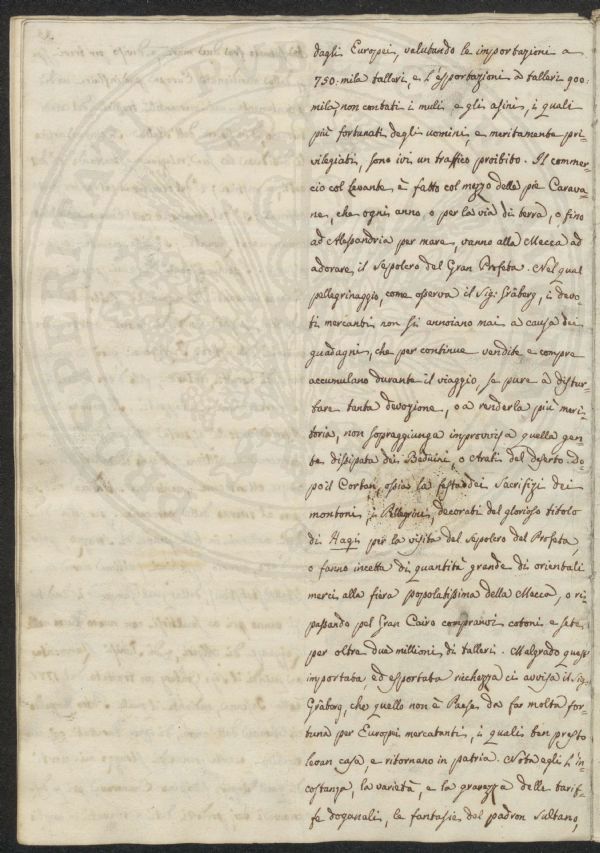 dagli Europei, valutando le importazioni a
750: mila talleri, e l'esportazioni a talleri 900:
mila, non contati i muli e gli asini, i quali
più fortunati degli uomini, e meritamente pri-
vilegiati, sono ivi un traffico proibito. Il commer-
cio col Levante è fatto col mezzo delle pie Carava-
ne, che ogni anno, o per la via di terra, o fino
ad Alessandria per mare, vanno alla Mecca ad
adorare il Sepolcro del Gran Profeta. Nel qual
pellegrinaggio, come osserva il Sig: Gräberg, i devo-
ti mercanti non si annoiano mai a causa dei
guadagni, che per continue vendite e compre
accumulano durante il viaggio, se pure a distur-
bare tanta devozione, o a renderla più meri-
toria, non sopraggiunga improvvisa quella gen-
te dissipata dei Beduini, o Arabi del deserto. Do-
po il Corban, ossia la festa dei sacrifizi dei
montoni, i Pellegrini, decorati del glorioso titolo
di Hagi per la visita del Sepolcro del Profeta,
o fanno incetta di quantità grande di orientali
merci alla fiera popolatissima della Mecca, o ri-
passando pel Gran Cairo compranvi cotoni e sete
per oltre due millioni di talleri. Malgrado quest'
importata, ed esportata ricchezza ci avvisa il Sig:
Gräberg, che quello non è Paese da far molta for-
tuna per Europei mercatanti, i quali ben presto
levan casa, e ritornano in patria. Nota egli l'in-
costanza, la varietà, e la gravezza delle tarif-
fe doganali, le fantasie del padron Sultano,